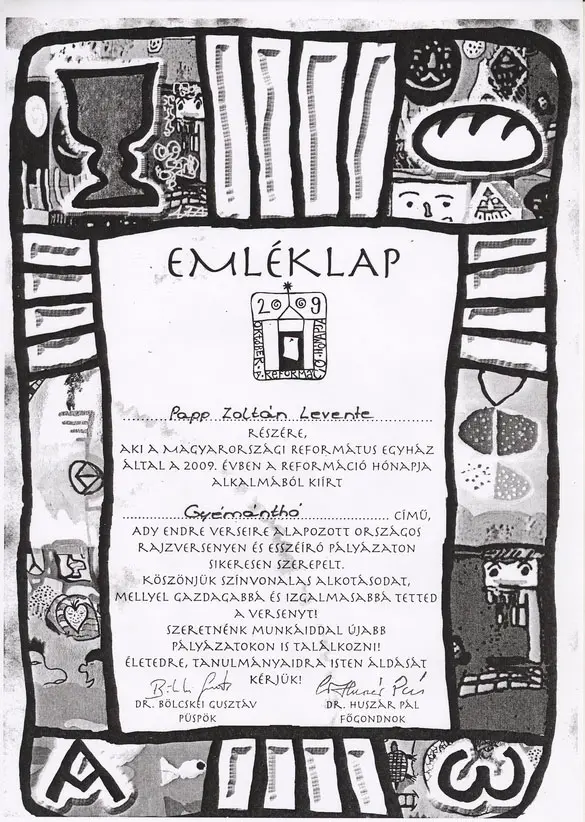 EMLÉKLAP
2009
OKTÓBER A REFORMÁCIÓ HÓNAPJA
Papp Zoltán Levente
RÉSZÉRE,
AKI A MAGYARORSZÁGI REFORMÁTUS EGYHÁZ
ÁLTAL A 2009. ÉVBEN A REFORMÁCIÓ HÓNAPJA
ALKALMÁBÓL KIÍRT
Gyémánthó CÍMŰ,
ADY ENDRE VERSEIRE ALAPOZOTT ORSZÁGOS
RAJZVERSENYEN ÉS ESSZÉÍRÓ PÁLYÁZATON
SIKERESEN SZEREPELT.
KÖSZÖNJÜK SZÍNVONALAS ALKOTÁSODAT,
MELLYEL GAZDAGABBÁ ÉS IZGALMASABBÁ TETTED
A VERSENYT!
SZERETNÉNK MUNKÁIDDAL ÚJABB
PÁLYÁZATOKON IS TALÁLKOZNI!
ÉLETEDRE, TANULMÁNYAIDRA ISTEN ÁLDÁSÁT
KÉRJÜK!
DR. BÖLCSKEI GUSZTÁV
PÜSPÖK
DR. HUSZÁR PÁL
FŐGONDNOK
A
ω